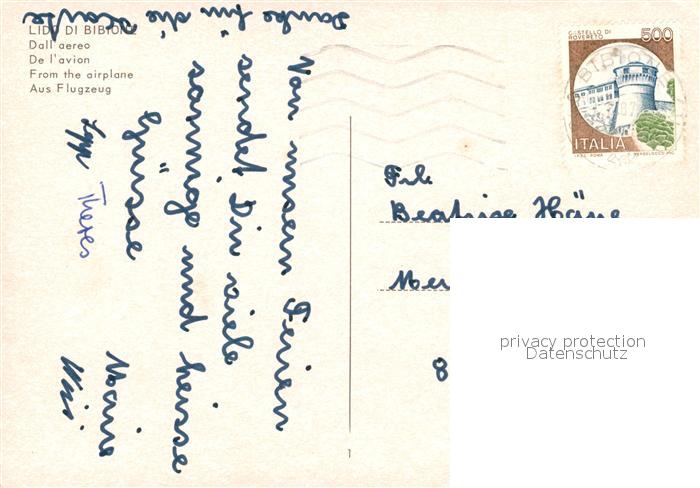 LIDO DI BIBIONE
Dall'aereo
De l'avion
From the airplane
Aus Flugzeug
Danke für die Karte
Von unsern Ferien
sendet Dir viele
sonnige und heisse
Grüsse
Theres
CASTELLO DI
ROVERETO
500
ITALIA
BIBIONE
Frl.
Beatrice Häne
8
privacy protection
Datenschutz